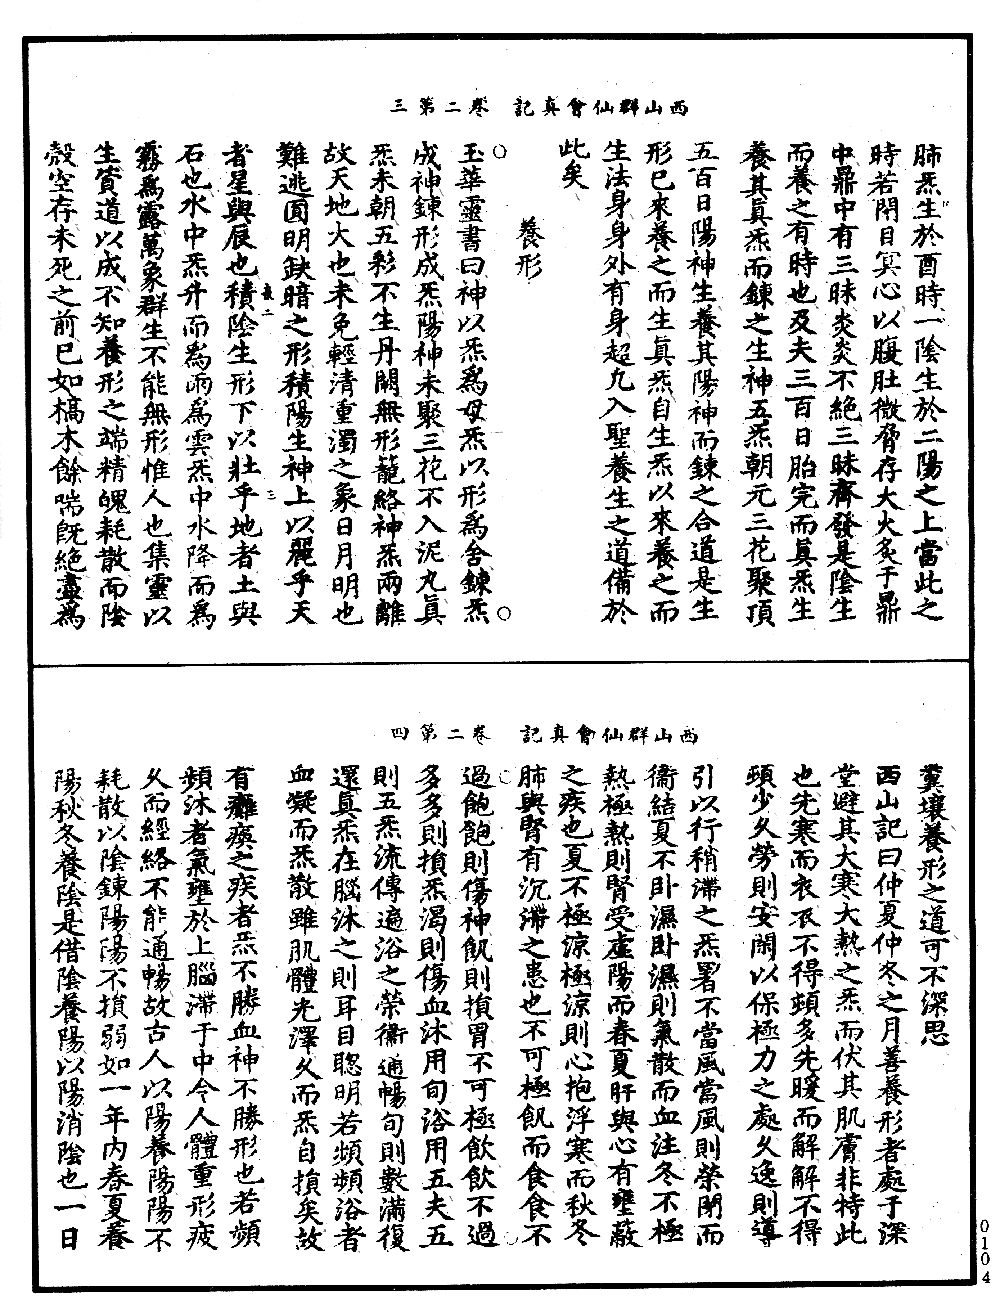 西山群仙會真記　卷二第三
肺炁生於酉時一陰生於二陽之上當此之
時若閉目冥心以腹肚微脅存大火炙于鼎
中鼎中有三昧炎炎不絕三昧齊發是陰生
而養之有時也及夫三百日胎完而真炁生
養其真炁而鍊之生神五炁朝元三花聚頂
五百日陽神生養其陽神而鍊之合道是生
形已來養之而生真炁自生炁以來養之而
生法身身外有身超凡入聖養生之道備於
此矣
養形
玉華靈書曰神以炁為母炁以形為舍鍊炁
成神鍊形成炁陽神未聚三花不入泥丸真
炁未朝五彩不生丹闕無形籠絡神炁兩離
故天地大也未免輕清重濁之象日月明也
難逃圓明缺暗之形積陽生神上以麗乎天
者星與辰也積陰生形下以壯乎地者土與
石也水中炁升而為雨為雲炁中水降而為
霧為露萬象群生不能無形惟人也集靈以
生資道以成不知養形之端精魄耗散而陰
殼空存未死之前已如槁木餘喘既絕盡為
西山群仙會真記　卷二第四
糞壤養形之道可不深思
西山記曰仲夏仲冬之月善養形者處于深
堂避其大寒大熱之炁而伏其肌膚非特此
也先寒而衣衣不得頓多先暖而解解不得
頓少久勞則安閑以保極力之處久逸則導
引以行稍滯之炁署不當風當風則榮閉而
衞結夏不卧濕卧濕則氣散而血注冬不極
熱極熱則腎受虛陽而春夏肝與心有壅蔽
之疾也夏不極涼極涼則心抱浮寒而秋冬
肺與腎有沉滯之患也不可極飢而食食不
過飽飽則傷神飢則損胃不可極飲飲不過
多多則損炁渴則傷血沐用旬浴用五夫五
則五炁流傳遍浴之榮衞通暢旬則數滿復
還真炁在腦沐之則耳目聰明若頻頻浴者
血凝而炁散雖肌體光澤久而炁自損矣故
有癱瘓之疾者炁不勝血神不勝形也若頻
頻沐者氣壅於上腦滯于中令人體重形疲
久而經絡不能通暢故古人以陽養陽陽不
耗散以陰鍊陽陽不損弱如一年內春夏養
陽秋冬養陰是借陰養陽以陽消陰也一日
0104